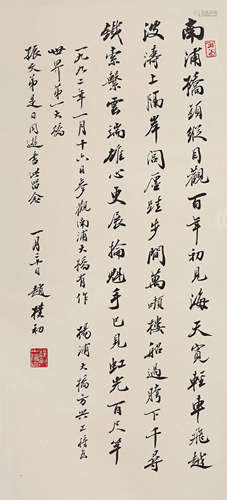 南浦橋頭縱目觀百年初見海天寬輕車飛越
波濤上隔岸跬步間萬噸樓船過胯下千尋
鐵索繫雲端雄心更展掄魁手已見虹光百尺竿
一九九二年一月十六日參觀南浦大橋有作 楊浦大橋方興工將為
世界第一大橋
振天弟是日同遊書留念
一月日 趙樸初